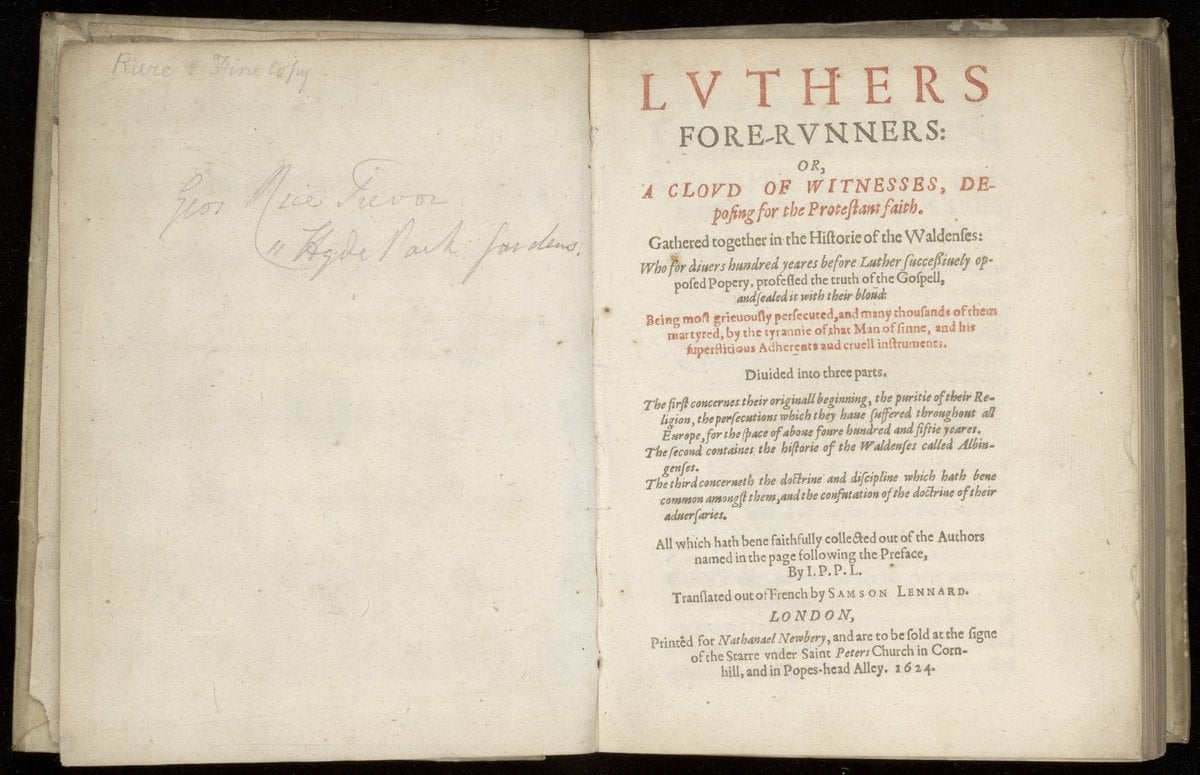 Rare & Fine Copy
Geo: Rice Trevor
11 Hyde Park Gardens.
LVTHERS
FORE-RVNNERS:
OR,
A CLOVD OF WITNESSES, DE-
poſing for the Proteſtant faith.
Gathered together in the Hiſtorie of the Waldenſes:
Who for diuers hundred yeares before Luther ſucceſſiuely op-
poſed Popery, profeſſed the truth of the Goſpell,
and ſealed it with their bloud:
Being moſt grieuouſly perſecuted, and many thouſands of them
martyred, by the tyrannie of that Man of ſinne, and his
ſuperſtitious Adherents and cruell inſtruments.
Diuided into three parts.
The firſt concernes their originall beginning, the puritie of their Re-
ligion, the perſecutions which they haue ſuffered throughout all
Europe, for the ſpace of aboue foure hundred and fiftie yeares.
The ſecond containes the hiſtorie of the Waldenſes called Albin-
genſes.
The third concerneth the doctrine and diſcipline which hath bene
common amongſt them, and the confutation of the doctrine of their
aduerſaries.
All which hath bene faithfully collected out of the Authors
named in the page following the Preface,
By I.P.P.L.
Tranſlated out of French by SAMSON LENNARD.
LONDON,
Printed for Nathanael Newbery, and are to be ſold at the ſigne
of the Starre vnder Saint Peters Church in Corn-
hill, and in Popes-head Alley. 1624.